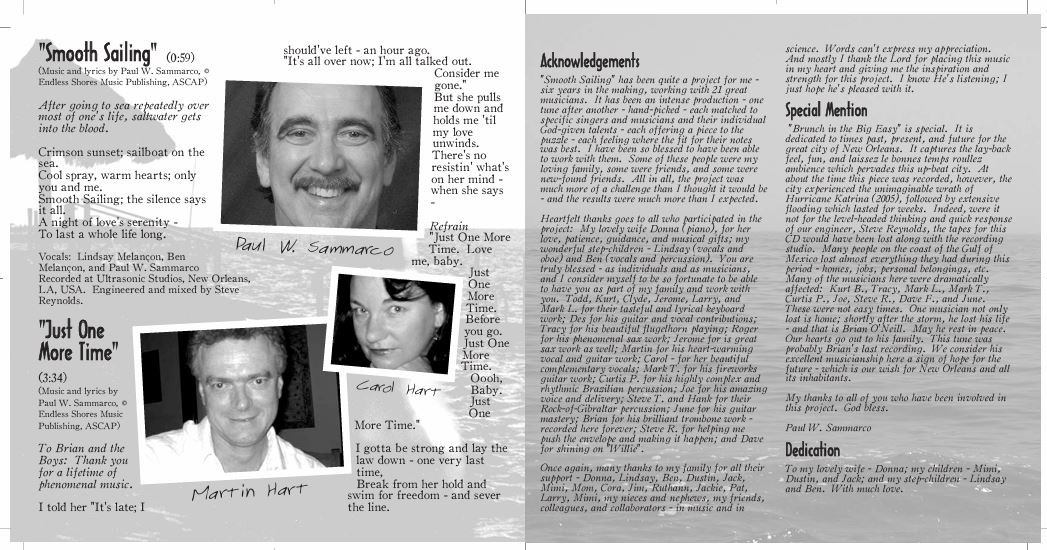 "Smooth Sailing" (0:59)
(Music and lyrics by Paul W. Sammarco, ©
Endless Shores Music Publishing, ASCAP)
After going to sea repeatedly over
most of one's life, saltwater gets
into the blood.
Crimson sunset; sailboat on the
sea.
Cool spray, warm hearts; only
you and me.
Smooth Sailing; the silence says
it all.
A night of love's serenity -
To last a whole life long.
Vocals: Lindsay Melançon, Ben
Melançon, and Paul W. Sammarco
Recorded at Ultrasonic Studios, New Orleans,
LA, USA. Engineered and mixed by Steve
Reynolds.
"Just One
More Time"
(3:34)
(Music and lyrics by
Paul W. Sammarco, ©
Endless Shores Music
Publishing, ASCAP)
To Brian and the
Boys: Thank you
for a lifetime of
phenomenal music.
I told her "It's late; I
should've left - an hour ago.
"It's all over now; I'm all talked out.
Consider me
gone."
But she pulls
me down and
holds me 'til
my love
unwinds.
There's no
resistin' what's
on her mind -
when she says
-
Refrain
"Just One More
Time. Love
me, baby.
Just
One
More
Time.
Before
you go.
Just One
More
Time.
Oooh,
Baby.
Just
One
More Time."
I gotta be strong and lay the
law down - one very last
time,
Break from her hold and
swim for freedom - and sever
the line.
Paul W. Sammarco
Carol Hart
Martin Hart
Acknowledgements
"Smooth Sailing" has been quite a project for me -
six years in the making, working with 21 great
musicians. It has been an intense production - one
tune after another - hand-picked - each matched to
specific singers and musicians and their individual
God-given talents - each offering a piece to the
puzzle - each feeling where the fit for their notes
was best. I have been so blessed to have been able
to work with them. Some of these people were my
loving family, some were friends, and some were
new-found friends. All in all, the project was
much more of a challenge than I thought it would be
- and the results were much more than I expected.
Heartfelt thanks goes to all who participated in the
project: My lovely wife Donna (piano), for her
love, patience, guidance, and musical gifts; my
wonderful step-children - Lindsay (vocals and
oboe) and Ben (vocals and percussion). You are
truly blessed - as individuals and as musicians,
and I consider myself to be so fortunate to be able
to have you as part of my family and work with
you. Todd, Kurt, Clyde, Jerome, Larry, and
Mark L. for their tasteful and lyrical keyboard
work; Des for his guitar and vocal contributions;
Tracy for his beautiful flugelhorn playing; Roger
for his phenomenal sax work; Jerome for is great
sax work as well; Martin for his heart-warming
vocal and guitar work; Carol - for her beautiful
complementary vocals; Mark T. for his fireworks
guitar work; Curtis P. for his highly complex and
rhythmic Brazilian percussion; Joe for his amazing
voice and delivery; Steve T. and Hank for their
Rock-of-Gibraltar percussion; June for his guitar
mastery; Brian for his brilliant trombone work -
recorded here forever; Steve R. for helping me
push the envelope and making it happen; and Dave
for shining on "Willie".
Once again, many thanks to my family for all their
support - Donna, Lindsay, Ben, Dustin, Jack,
Mimi, Mom, Cora, Jim, Ruthann, Jackie, Pat,
Larry, Mimi, my nieces and nephews, my friends,
colleagues, and collaborators - in music and in
science. Words can't express my appreciation.
And mostly I thank the Lord for placing this music
in my heart and giving me the inspiration and
strength for this project. I know He's listening; I
just hope he's pleased with it.
Special Mention
"Brunch in the Big Easy" is special. It is
dedicated to times past, present, and future for the
great city of New Orleans. It captures the lay-back
feel, fun, and laissez le bonnes temps roullez
ambience which pervades this upbeat city. At
about the time this piece was recorded, however, the
city experienced the unimaginable wrath of
Hurricane Katrina (2005), followed by extensive
flooding which lasted for weeks. Indeed, were it
not for the level-headed thinking and quick response
of our engineer, Steve Reynolds, the tapes for this
CD would have been lost along with the recording
studio. Many people on the coast of the Gulf of
Mexico lost almost everything they had during this
period - homes, jobs, personal belongings, etc.
Many of the musicians here were dramatically
affected: Kurt B., Tracy, Mark L., Mark T.,
Curtis P., Joe, Steve R., Dave F., and June.
These were not easy times. One musician not only
lost is home; shortly after the storm, he lost his life
- and that is Brian O'Neill. May he rest in peace.
Our hearts go out to his family. This tune was
probably Brian's last recording. We consider his
excellent musicianship here a sign of hope for the
future - which is our wish for New Orleans and all
its inhabitants.
My thanks to all of you who have been involved in
this project. God bless.
Paul W. Sammarco
Dedication
To my lovely wife - Donna; my children - Mimi,
Dustin, and Jack; and my step-children - Lindsay
and Ben. With much love.